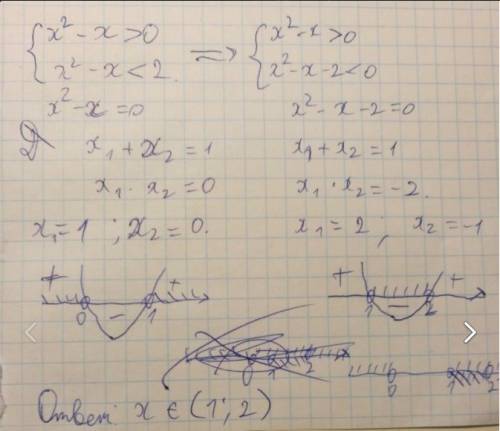 { x² - x > 0 ⟹ { x² - x > 0
{ x² - x < 2 { x² - x - 2 < 0
x² - x = 0 x² - x - 2 = 0
x₁ + x₂ = 1 x₁ + x₂ = 1
x₁ · x₂ = 0 x₁ · x₂ = -2.
x₁ = 1 ; x₂ = 0. x₁ = 2 ; x₂ = -1
+ - + + - +
0 1 1 2
0 1 2
Ответ: x ∈ (1; 2)